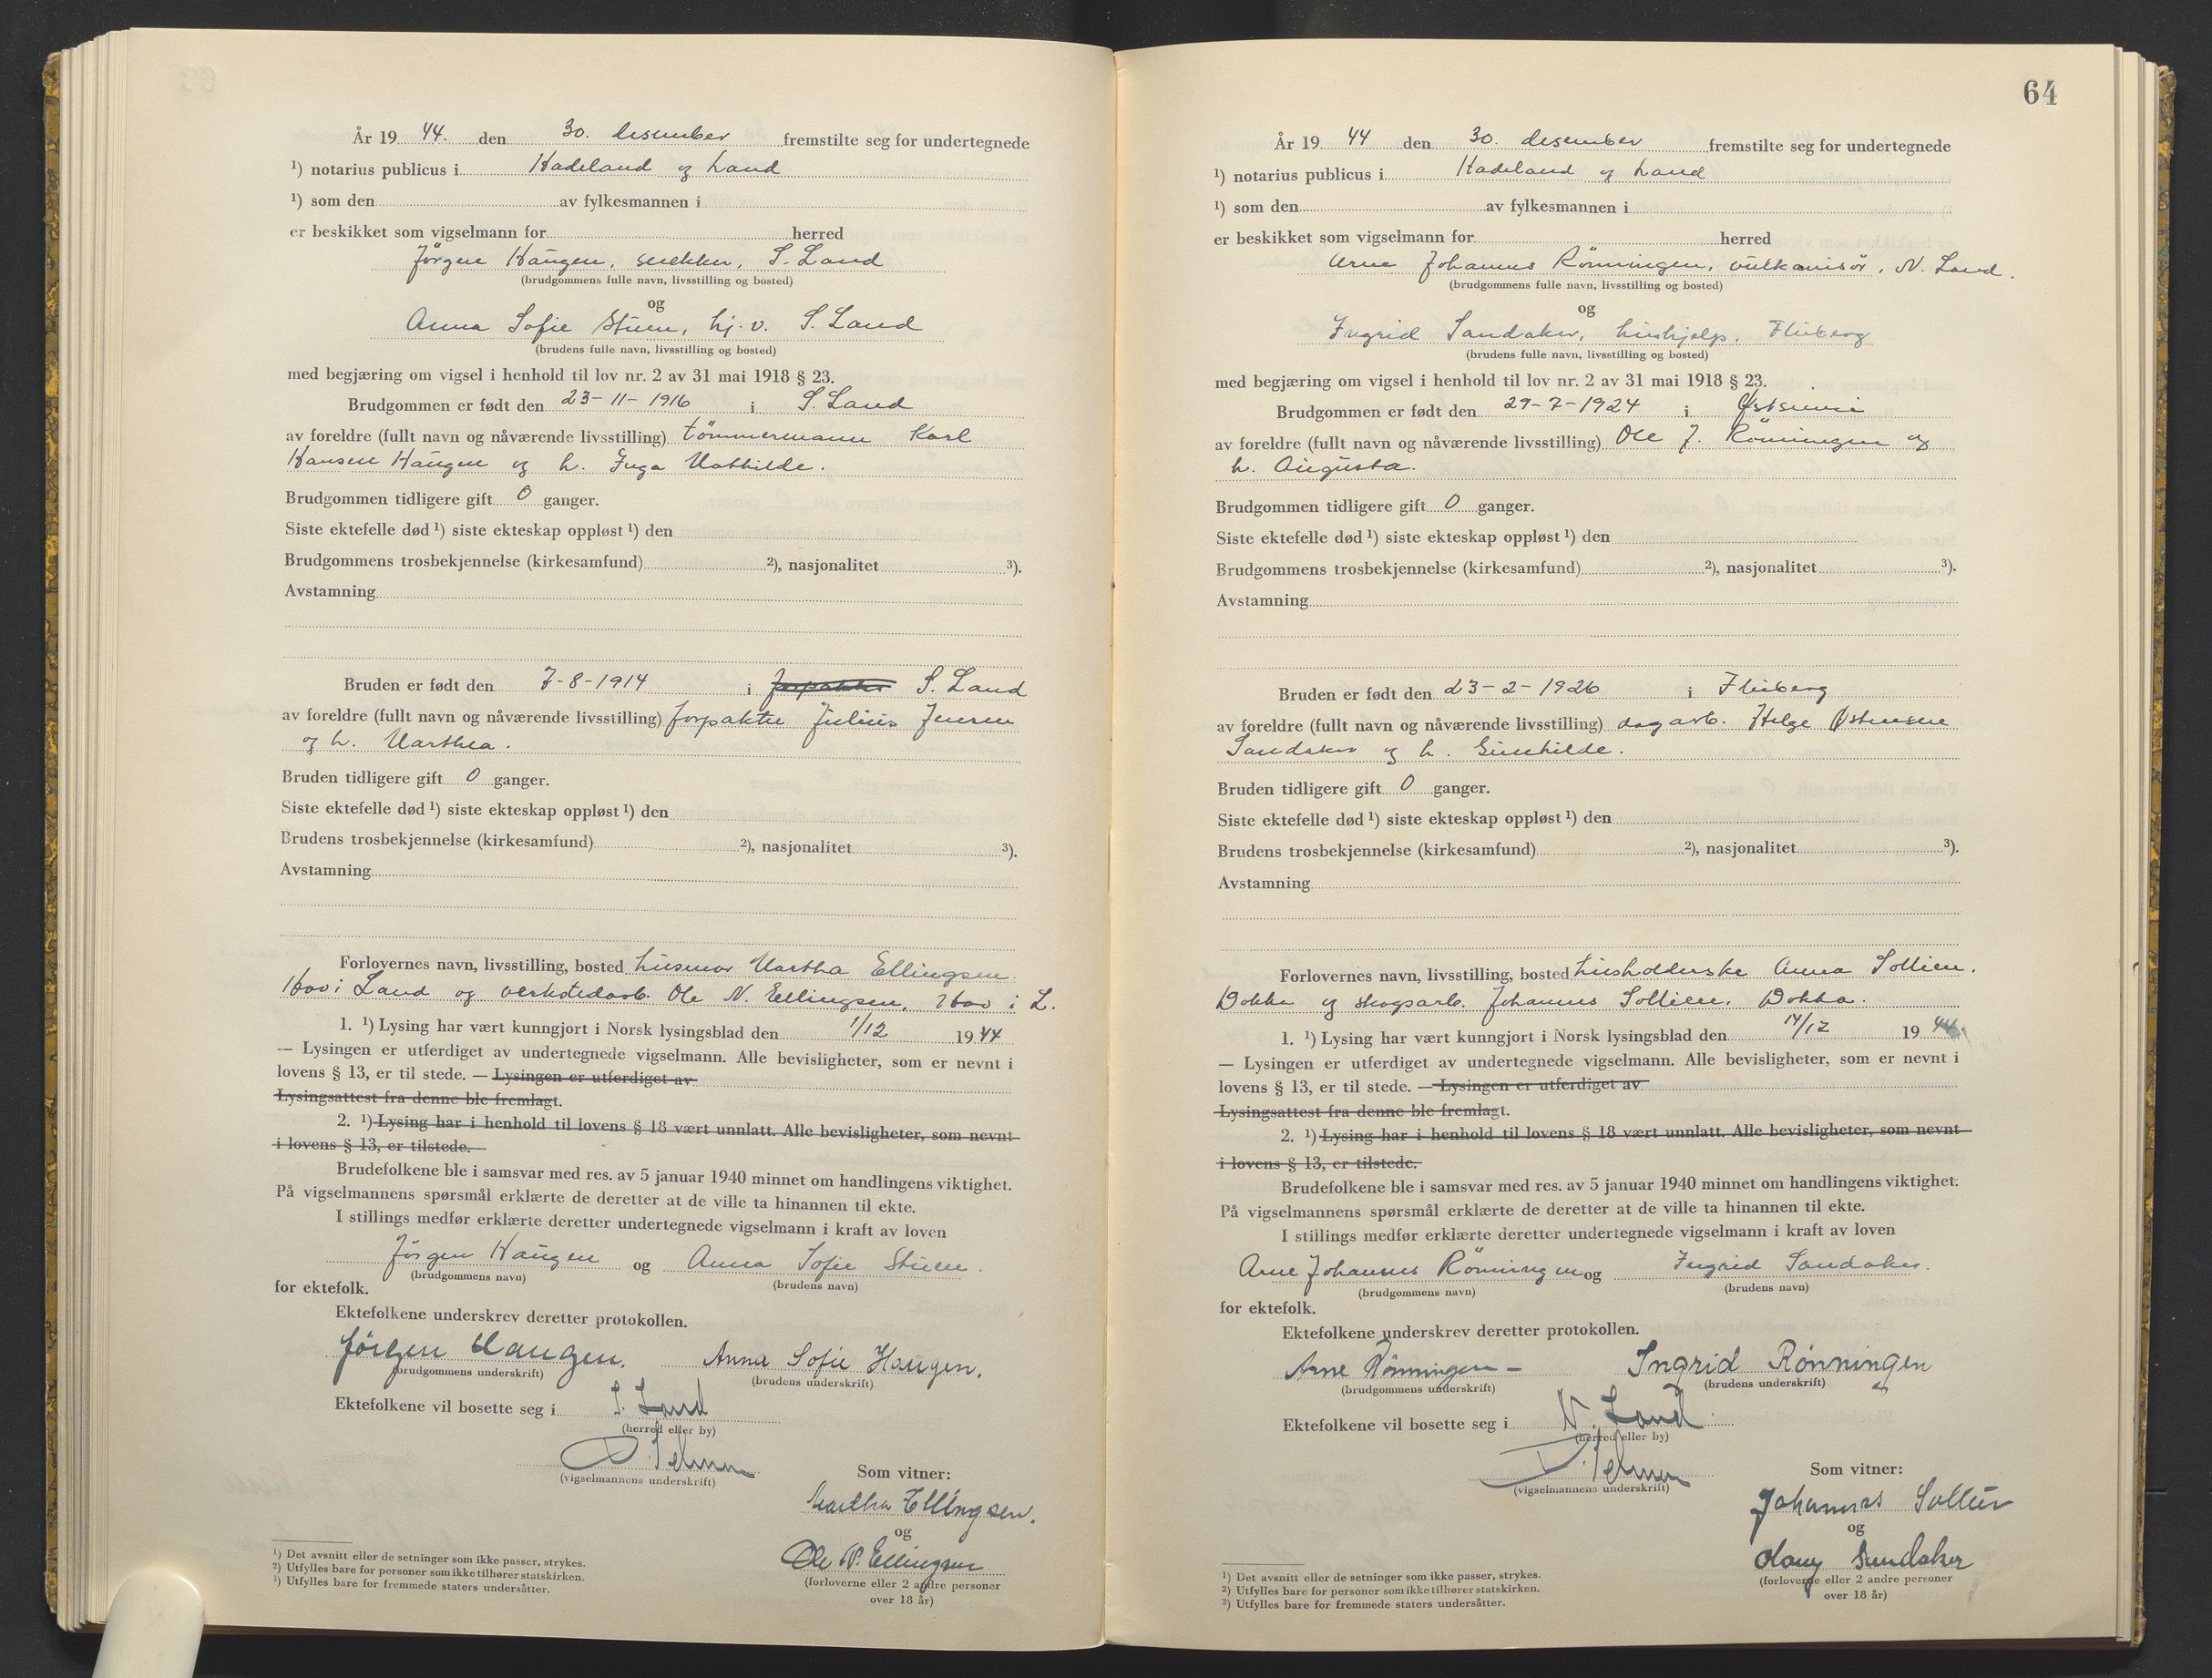 År 19 44. den 30. desember fremstilte seg for undertegnede
¹) notarius publicus i Hadeland og Land
¹) som den av fylkesmannen i
er beskikket som vigselmann for herred
Jörgen Haugen, snekker, S. Land
(brudgommens fulle navn, livsstilling og bosted)
og
Anna Sofie Stuen, hj. v. S. Land
(brudens fulle navn, livsstilling og bosted)
med begjæring om vigsel i henhold til lov nr. 2 av 31 mai 1918 § 23.
Brudgommen er født den 23-11-1916 i S. Land
av foreldre (fullt navn og nåværende livsstilling) tömmermann Karl
Hansen Haugen og h. Inga Mathilde.
Brudgommen tidligere gift 0 ganger.
Siste ektefelle død ¹) siste ekteskap oppløst ¹) den
Brudgommens trosbekjennelse (kirkesamfund) ²), nasjonalitet ³).
Avstamning
Bruden er født den 7-8-1914 i forpakter S. Land
av foreldre (fullt navn og nåværende livsstilling) forpakter Julius Jensen
og h. Marthea.
Bruden tidligere gift 0 ganger.
Siste ektefelle død ¹) siste ekteskap oppløst ¹) den
Brudens trosbekjennelse (kirkesamfund) ²), nasjonalitet ³).
Avstamning
Forlovernes navn, livsstilling, bosted husmor Martha Ellingsen
Hov i Land og verkstedarb. Ole N. Ellingsen, Hov i L.
1. ¹) Lysing har vært kunngjort i Norsk lysingsblad den 1/12 1944
— Lysingen er utferdiget av undertegnede vigselmann. Alle bevisligheter, som er nevnt i
lovens § 13, er til stede. — Lysingen er utferdiget av
Lysingsattest fra denne ble fremlagt.
2. ¹) Lysing har i henhold til lovens § 18 vært unnlatt. Alle bevisligheter, som nevnt
i lovens § 13, er tilstede.
Brudefolkene ble i samsvar med res. av 5 januar 1940 minnet om handlingens viktighet.
På vigselmannens spørsmål erklærte de deretter at de ville ta hinannen til ekte.
I stillings medfør erklærte deretter undertegnede vigselmann i kraft av loven
Jörgen Haugen og Anna Sofie Stuen.
(brudgommens navn) (brudens navn)
for ektefolk.
Ektefolkene underskrev deretter protokollen.
Jörgen Haugen. Anna Sofie Haugen.
(brudgommens underskrift) (brudens underskrift)
Ektefolkene vil bosette seg i S. Land
(herred eller by)
(vigselmannens underskrift)
Som vitner:
Martha Ellingsen.
og
Ole N. Ellingsen
(forloverne eller 2 andre personer
over 18 år)
¹) Det avsnitt eller de setninger som ikke passer, strykes.
²) Utfylles bare for personer som ikke tilhører statskirken.
³) Utfylles bare for fremmede staters undersåtter.
64
År 19 44 den 30. desember fremstilte seg for undertegnede
¹) notarius publicus i Hadeland og Land
¹) som den av fylkesmannen i
er beskikket som vigselmann for herred
Arne Johannes Rönningen, vulkanisör, N. Land.
(brudgommens fulle navn, livsstilling og bosted)
og
Ingrid Sandaker, hushjelp, Fluberg
(brudens fulle navn, livsstilling og bosted)
med begjæring om vigsel i henhold til lov nr. 2 av 31 mai 1918 § 23.
Brudgommen er født den 29-7-1924 i Østsinni
av foreldre (fullt navn og nåværende livsstilling) Ole J. Rönningen og
h. Augusta.
Brudgommen tidligere gift 0 ganger.
Siste ektefelle død ¹) siste ekteskap oppløst ¹) den
Brudgommens trosbekjennelse (kirkesamfund) ²), nasjonalitet ³).
Avstamning
Bruden er født den 23-2-1926 i Fluberg
av foreldre (fullt navn og nåværende livsstilling) dagarb. Helge Østensen
Sandaker og h. Gunhilde.
Bruden tidligere gift 0 ganger.
Siste ektefelle død ¹) siste ekteskap oppløst ¹) den
Brudens trosbekjennelse (kirkesamfund) ²), nasjonalitet ³).
Avstamning
Forlovernes navn, livsstilling, bosted husholderske Anna Sollien.
Dokka og skogsarb. Johannes Sollien. Dokka.
1. ¹) Lysing har vært kunngjort i Norsk lysingsblad den 14/12 1944.
— Lysingen er utferdiget av undertegnede vigselmann. Alle bevisligheter, som er nevnt i
lovens § 13, er til stede. — Lysingen er utferdiget av
Lysingsattest fra denne ble fremlagt.
2. ¹) Lysing har i henhold til lovens § 18 vært unnlatt. Alle bevisligheter, som nevnt
i lovens § 13, er tilstede.
Brudefolkene ble i samsvar med res. av 5 januar 1940 minnet om handlingens viktighet.
På vigselmannens spørsmål erklærte de deretter at de ville ta hinannen til ekte.
I stillings medfør erklærte deretter undertegnede vigselmann i kraft av loven
Arne Johannes Rönningen og Ingrid Sandaker.
(brudgommens navn) (brudens navn)
for ektefolk.
Ektefolkene underskrev deretter protokollen.
Arne Rönningen – Ingrid Rönningen
(brudgommens underskrift) (brudens underskrift)
Ektefolkene vil bosette seg i N. Land.
(herred eller by)
(vigselmannens underskrift)
Som vitner:
Johannes Sollien
og
Sandaker
(forloverne eller 2 andre personer
over 18 år)
¹) Det avsnitt eller de setninger som ikke passer, strykes.
²) Utfylles bare for personer som ikke tilhører statskirken.
³) Utfylles bare for fremmede staters undersåtter.